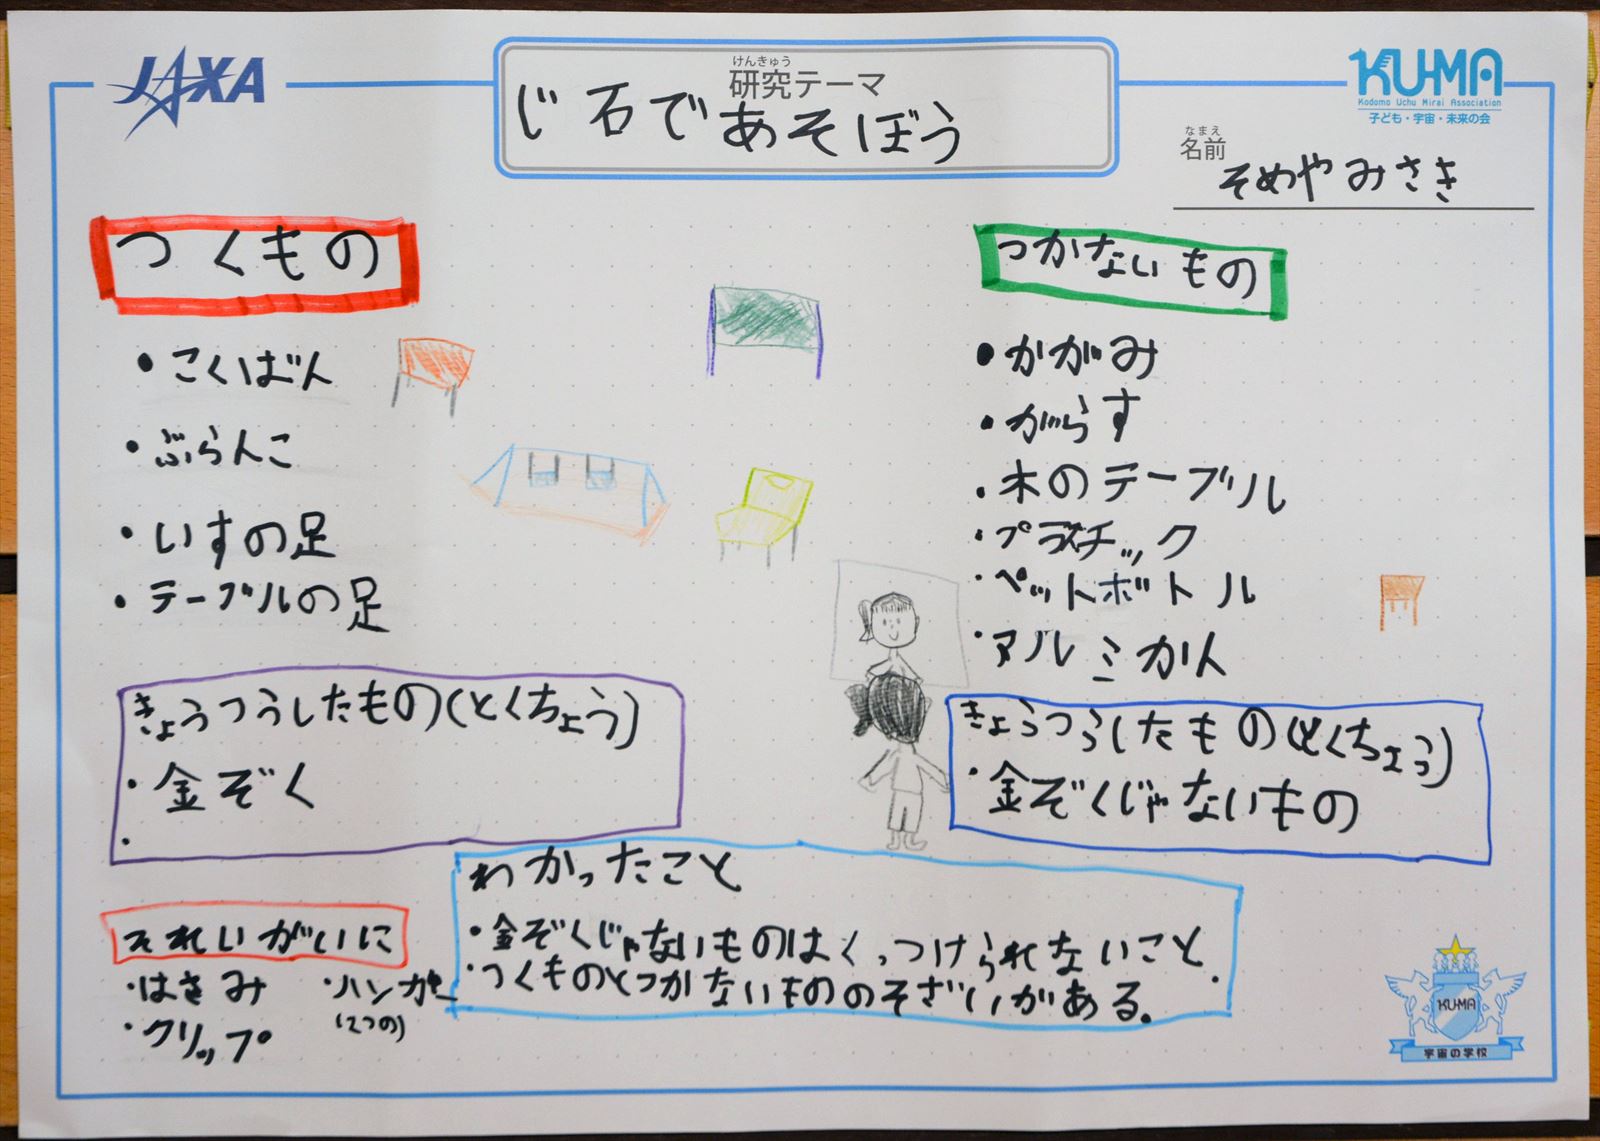 JAXA
けんきゅう
研究テーマ
じ石であそぼう
KU-MA
Kodomo Uchu Mirai Association
子ども・宇宙・未来の会
なまえ
名前
そめやみさき
つくもの
・こくばん
・ぶらんこ
・いすの足
・テーブルの足
つかないもの
・かがみ
・がらす
・木のテーブル
・プラスチック
・ペットボトル
・アルミかん
きょうつうしたもの(とくちょう)
・金ぞく
・
きょうつうしたもの(とくちょう)
・金ぞくじゃないもの
わかったこと
・金ぞくじゃないものはくっつけられないこと.
・つくものとつかないもののそざいがある.
それいがいに
・はさみ
・ハンガー
(てつの)
・クリップ
KU-MA
宇宙の学校